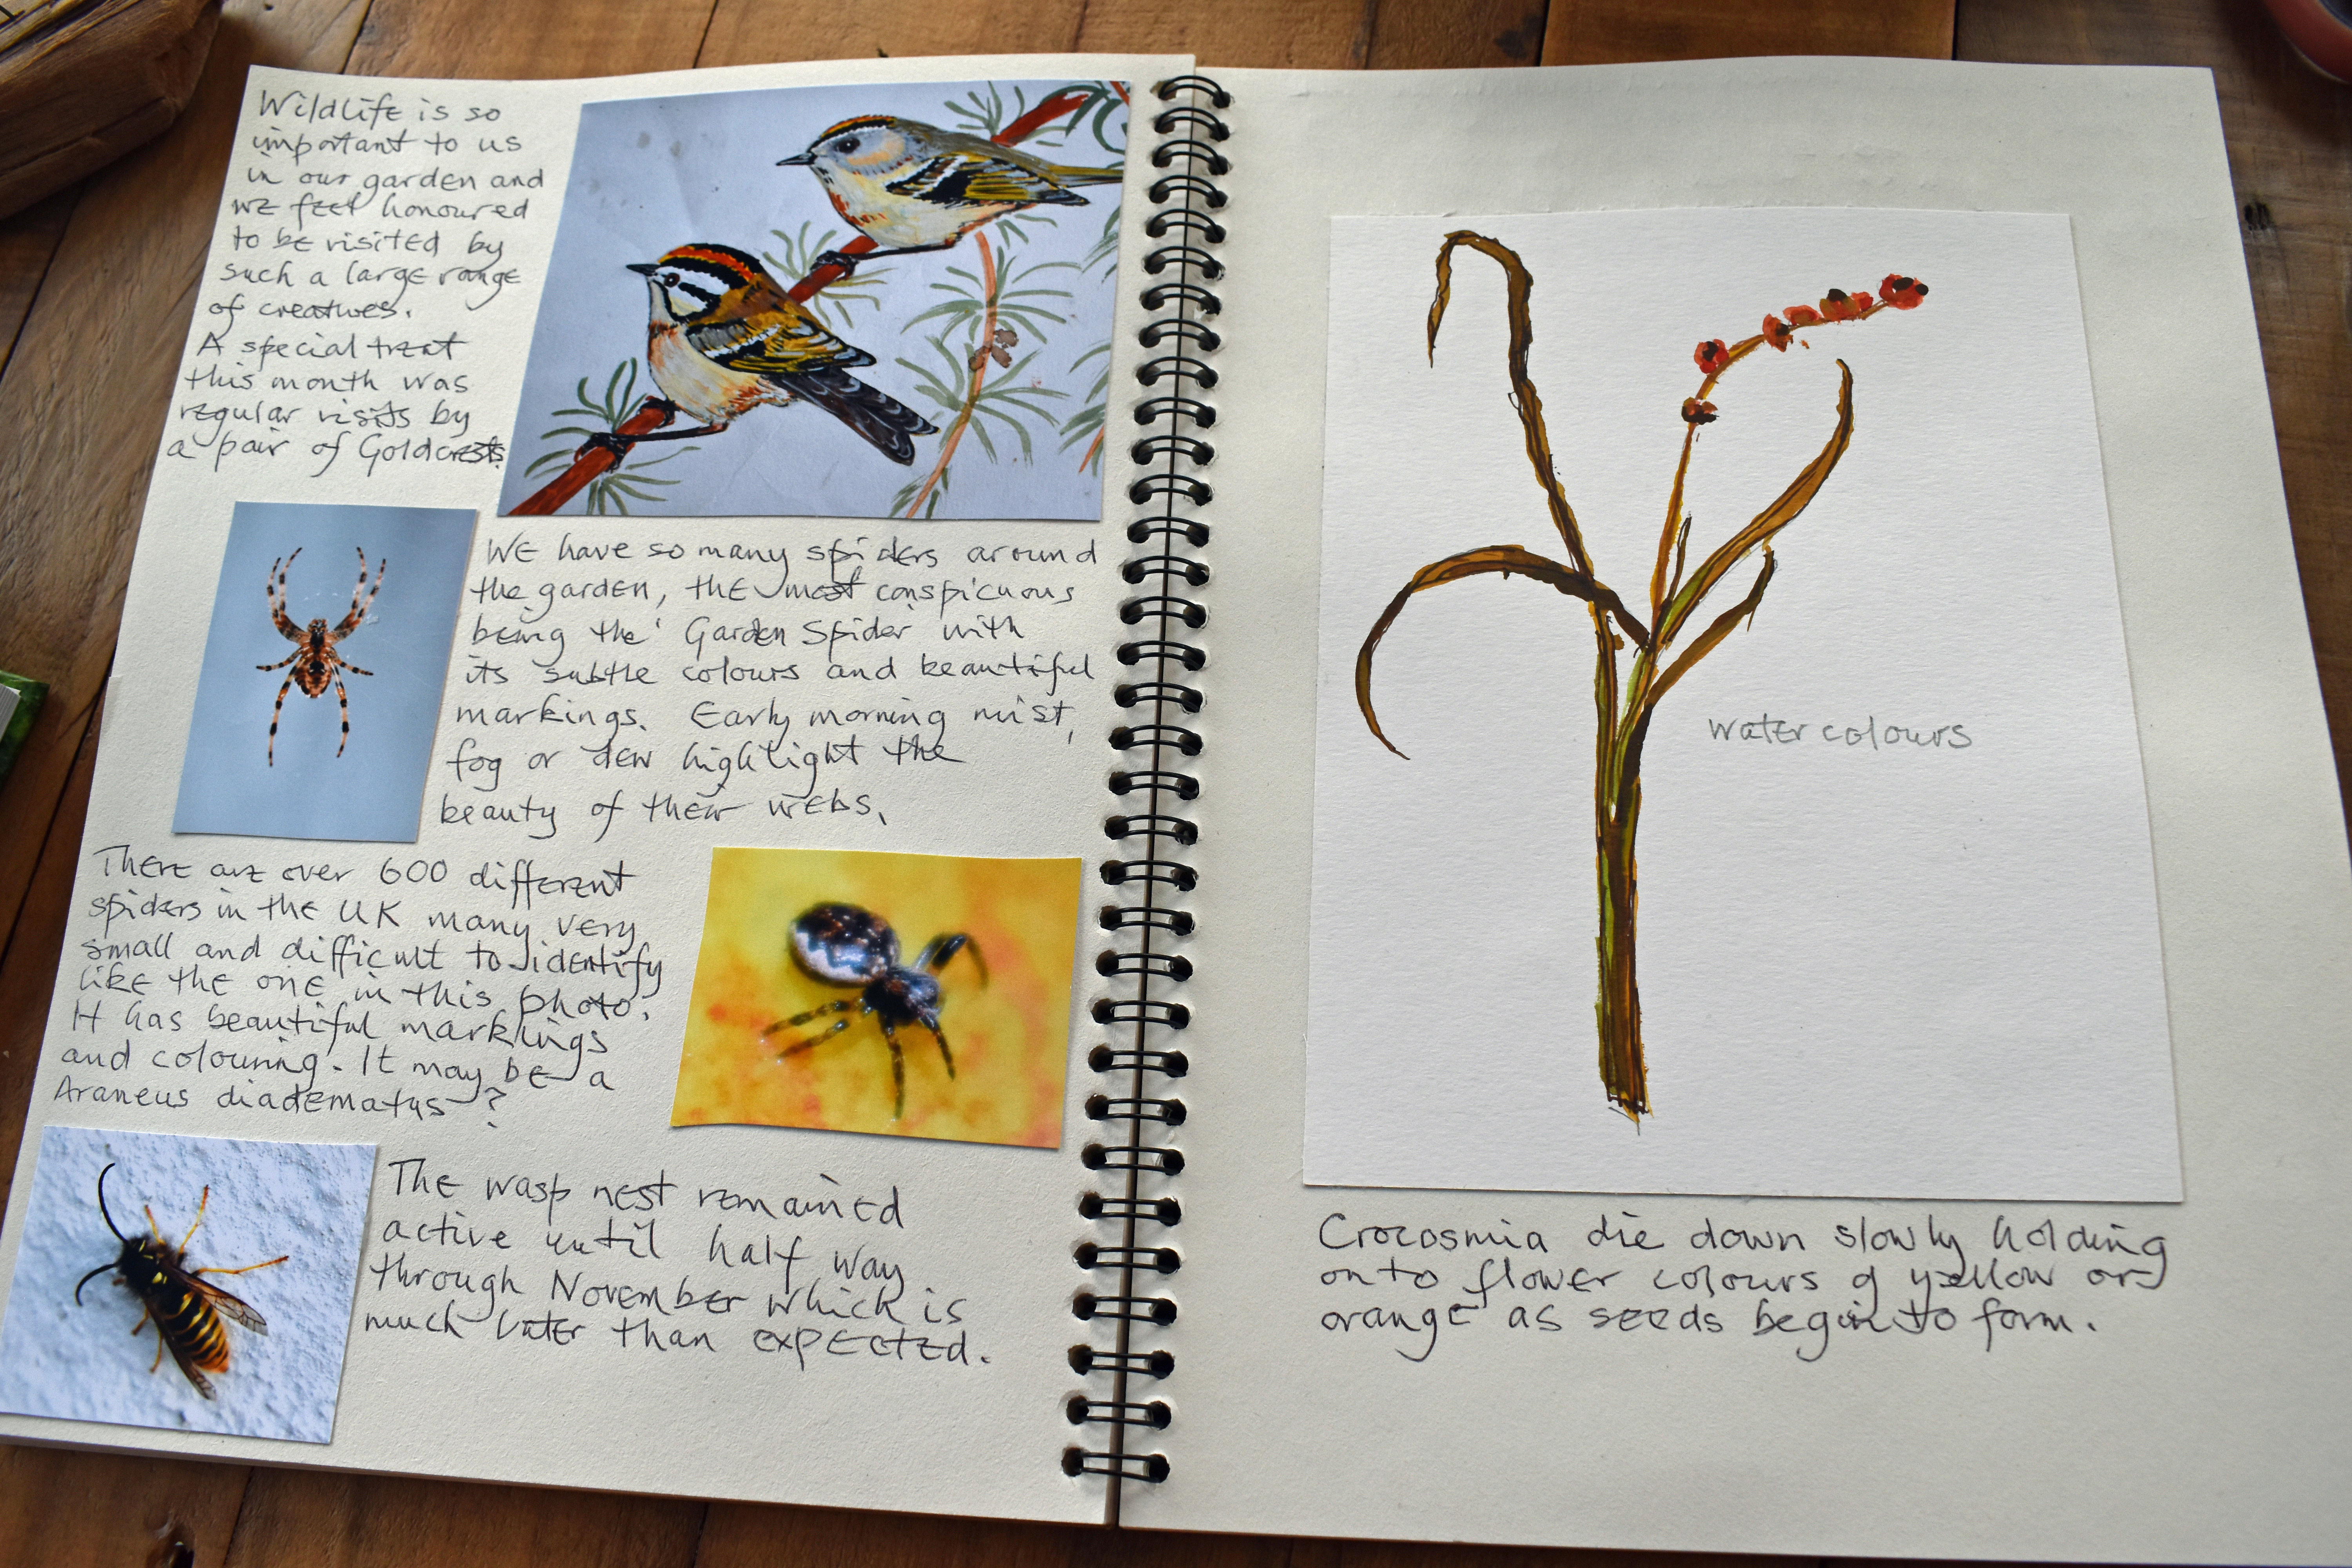 Wildlife is so
important to us
in our garden and
we feel honoured
to be visited by
such a large range
of creatures.
A special treat
this month was
regular visits by
a pair of Goldcrests.
We have so many spiders around
the garden, the most conspicuous
being the 'Garden Spider' with
its subtle colours and beautiful
markings. Early morning mist,
fog or dew highlight the
beauty of their webs.
There are over 600 different
spiders in the UK many very
small and difficult to identify
like the one in this photo.
It has beautiful markings
and colouring. It may be a
Araneus diadematus?
The wasp nest remained
active until half way
through November which is
much later than expected.
water colours
Crocosmia die down slowly holding
onto flower colours of yellow or
orange as seeds begin to form.